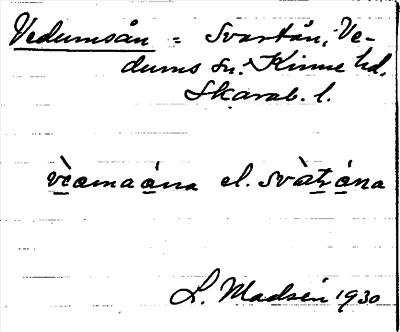 Vedumsån = Svartån, Ve-
dums sn. Kinne hd.
Skarab. l.
vèœmaåna el. svàtåna
L. Madsén 1930